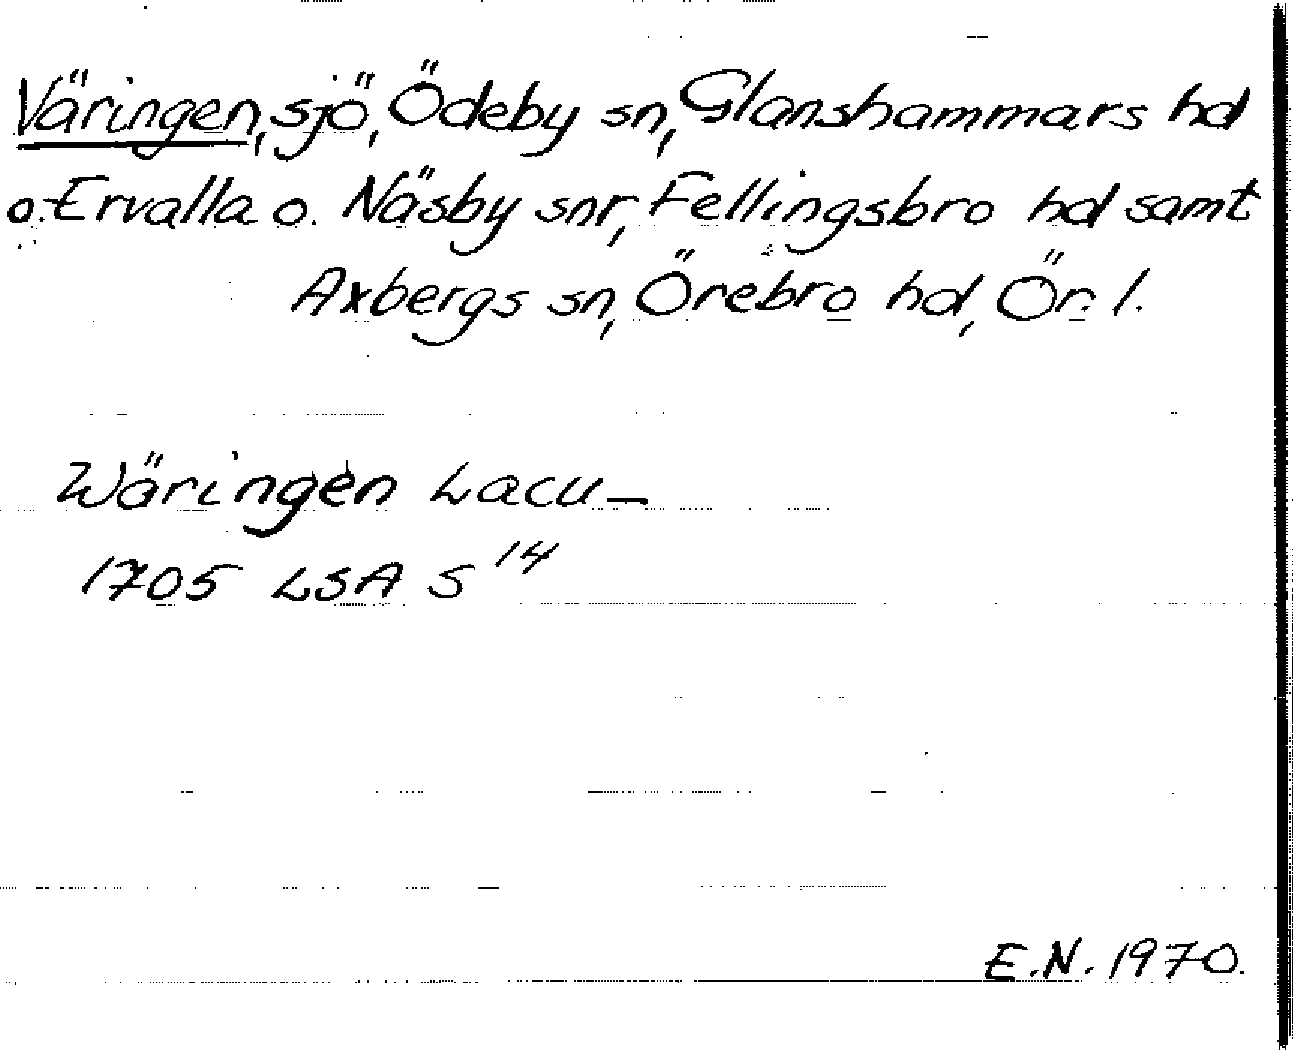 Väringen, sjö, Ödeby sn, Glanshammars hd
o. Ervalla o. Näsby snr, Fellingsbro hd samt
Axbergs sn, Örebro hd, Ör. l.
Wäringen Lacu—
1705 LSA S 14
E.N. 1970.